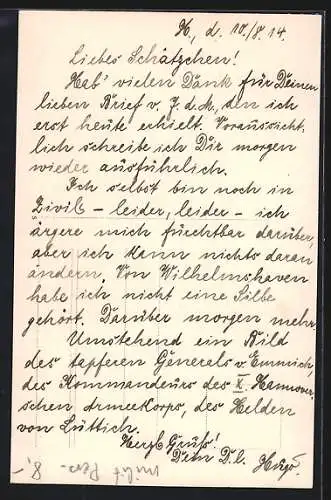 H., d. 10./8.14.
Liebes Schätzchen!
Hab' vielen Dank für Deinen
lieben Brief v. 7. d. M., den ich
erst heute erhielt. Voraussicht,
lich schreibe ich Dir morgen
wieder ausführlich.
Ich selbst bin noch in
Zivil – leider, leider – ich
ärgere mich furchtbar darüber,
aber ich kann nichts daran
ändern. Von Wilhelmshaven
habe ich nicht eine Silbe
gehört. Darüber morgen mehr.
Umstehend ein Bild
des tapferen Generals v. Emmich,
des Kommandeurs des X. Hannover,
schen Armeekorps, des Helden
von Lüttich.
Herzl. Gruss!
Dein D. l. Hugo.
8,-